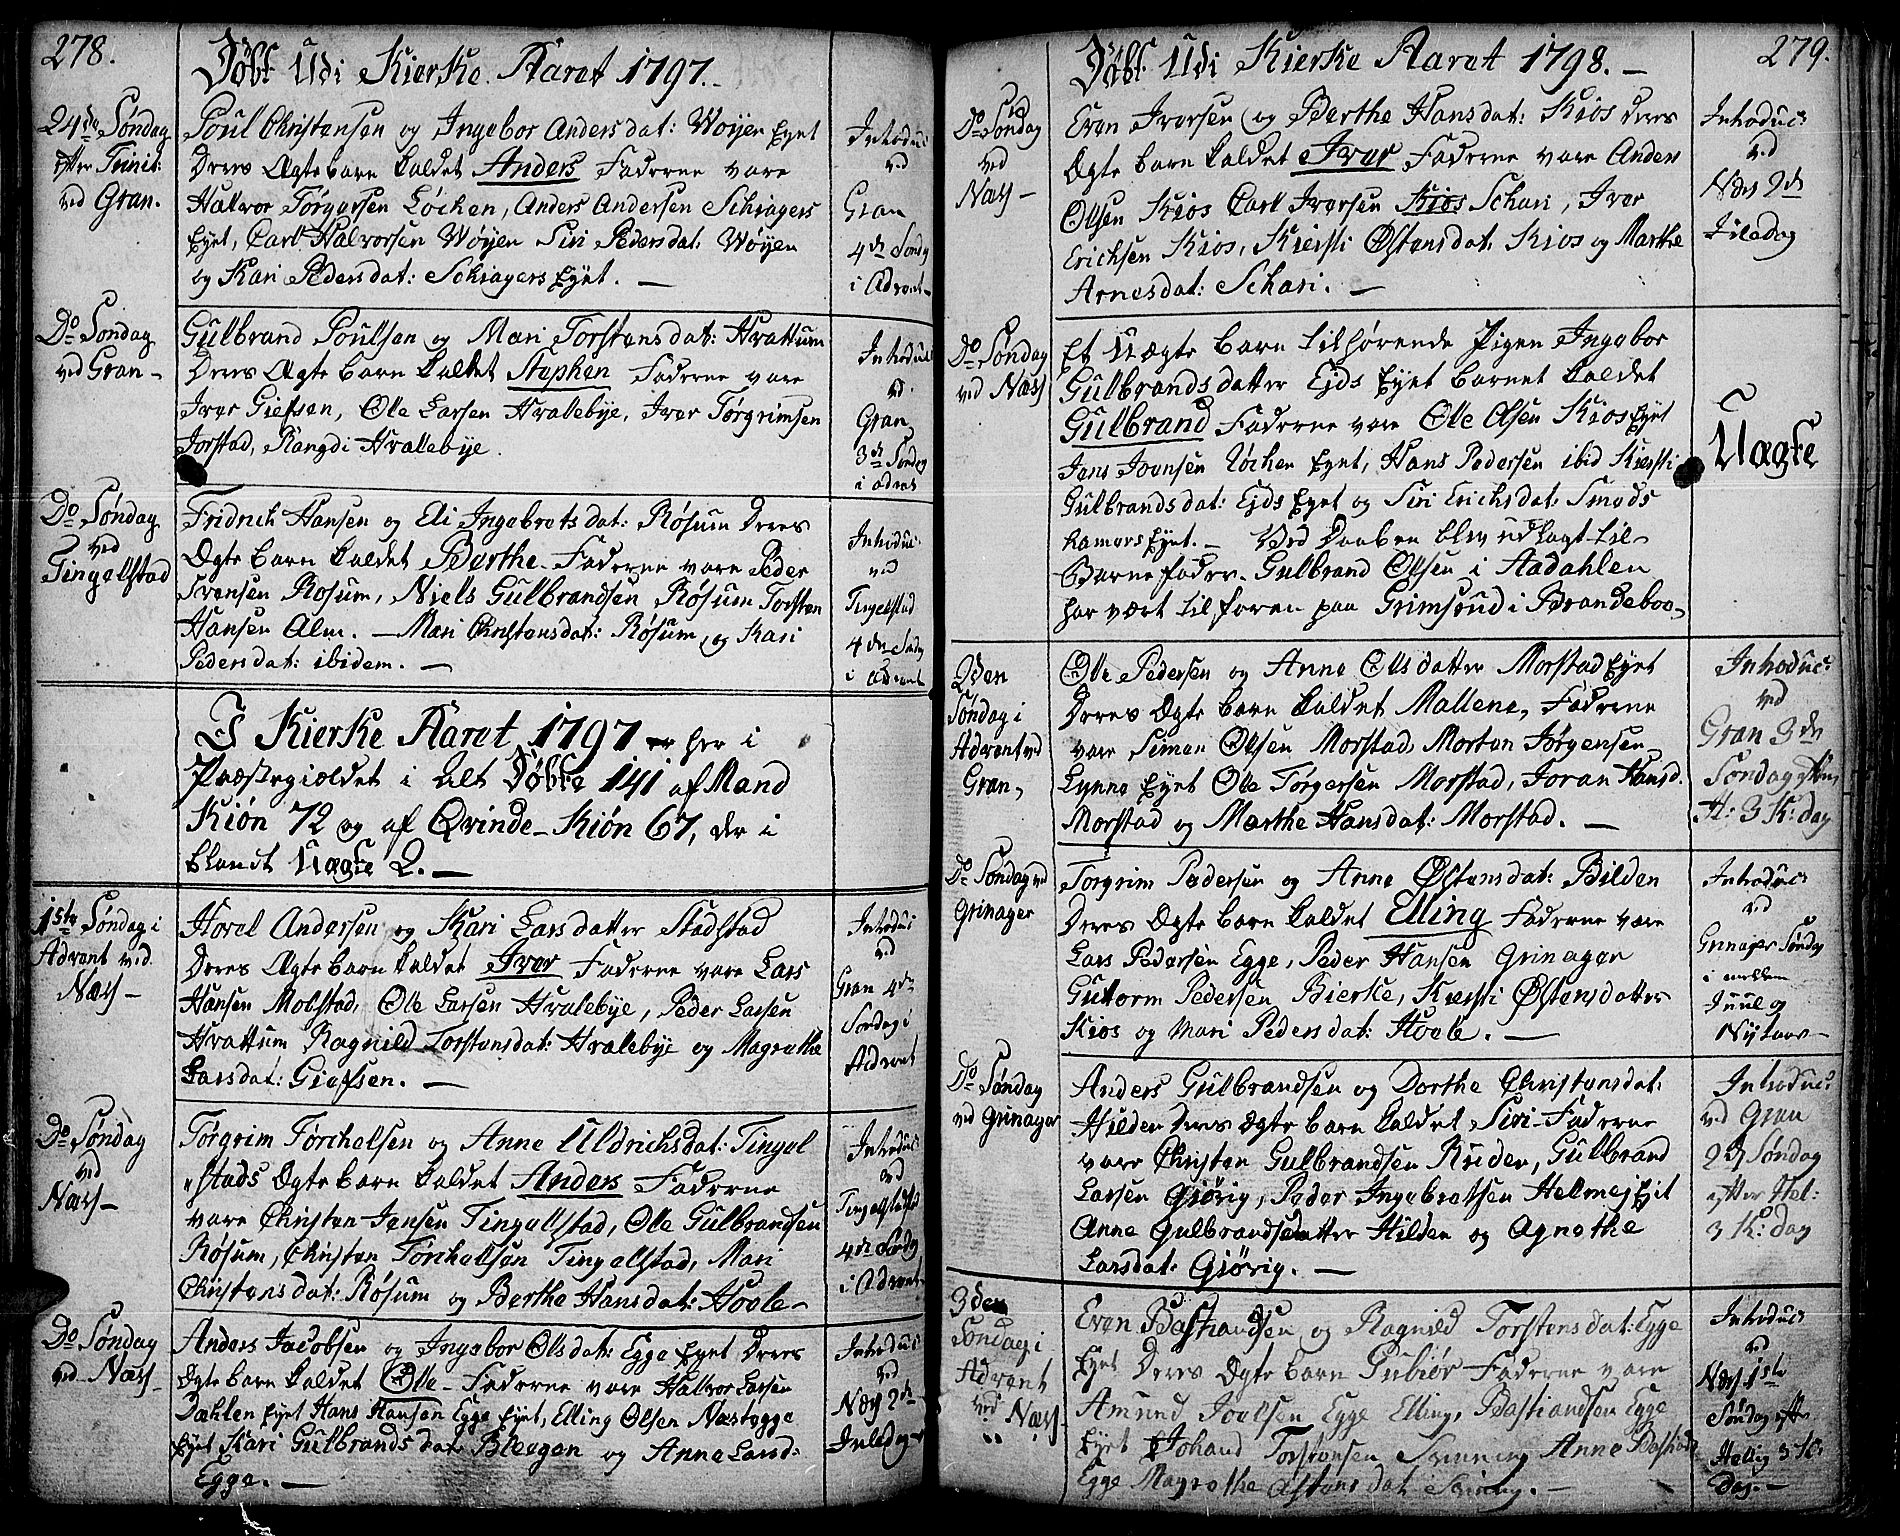 278.
Døbt Udi Kierke Aaret 1797.
24de Søndag
efter Trinit:
ved Gran.
Poul Christensen og Ingebor Andersdat: Woyen Eyet
Deres Ægte barn kaldet Anders Fadderne vare
Halvor Törgersen Løcken, Anders Andersen Schiagers
Eyet, Carl Halvorsen Wøyen Siri Pedersdat: Wøyen
og Kari Pedersdat: Schiagers Eyet. —
Introduc:
ved
Gran
4de Søndg
i Advent —
Do Søndag
ved Gran —
Gulbrand Poulsen og Mari Torstensdat: Hvattum
Deres Ægte barn kaldet Stephen Fadderne vare
Iver Giefsen, Ole Larsen Hvalebye, Iver Törgrimsen
Jorstad, Rangdi Hvalebye.
Introduc
ved
Gran
3de Søndag
i Advent
Do Søndag
ved
Tingelstad
Fridrich Hansen og Eli Ingebretsdat: Røsum Deres
Ægte barn kaldet Berthe Fadderne vare Peder
Svensen Rosum, Niels Gulbrandsen Røsum Torsten
Hansen Alm. — Mari Christensdat: Røsum og Kari
Pedersdat: ibidem. —
Introduc:
ved
Tingelstad
4de Søndag
i Advent
I Kierke Aaret 1797 er her i
Præstegieldet i alt Døbte 141 af Mand
Kiön 72 og af Qvinde-Kiön 67, der i
blandt Uægte 2. —
1ste Søndag i
Advent ved
Næs —
Hovel Andersen og Kari Larsdatter Stadstad
Deres Ægte barn kaldet Iver Fadderne vare Lars
Hansen Molstad, Ole Larsen Hvalebye, Peder Larsen
Hvattum Ragnild Torstensdat: Hvalebye og Magrethe
Larsdat: Giefsen. —
Introduc
ved
Gran 4de
Søndag i
Advent
Do Søndag
ved
Næs —
Törgrim Törchelsen og Anne Uldrichsdat: Tingel
"stads Ægte barn kaldet Anders Fadderne
vare Christen Jensen Tingelstad, Ole Gulbrandsen
Røsum, Christen Törchelsen Tingelstad, Mari
Christensdat: Røsum og Berthe Hansdat: Hoole —
Introduc
ved
Tingelstad
4de Søndg
i Advent
Do Søndag
ved Næs —
Anders Jacobsen og Ingebor Olsdat: Egge Eyet Deres
Ægte barn kaldet Ole — Fadderne vare Halvor Larsen
Dæhlen Eyet Hans Hansen Egge Eyet, Elling Olsen Næstegge
Eyet Kari Gulbrandsdat Blegen og Anne Larsd:
Egge. —
Introduc:
ved
Næs 2de
Juledag
279.
Døbt Udi Kierke Aaret 1798. —
Do Søndag
ved
Næs —
Even Iversen og Berthe Hansdat: Kios Deres
Ægte barn kaldet Iver Fadderne vare Anders
Olsen Kios Carl Iversen Kios Schari, Iver
Erichsen Kios, Kiersti Østensdat: Kios og Marthe
Arnesdat: Schari. —
Introduc:
ved
Næs 2de
Juledag
Do Søndag
ved Næs
Et Uægte barn tilhørende Pigen Ingebor
Gulbrandsdatter Ejds Eyet barnet kaldet
Gulbrand Fadderne vare Ole Olsen Kios Eyet
Jens Iversen Løcken Eyet, Hans Pedersen ibid Kiersti
Gulbrandsdat: Ejds Eyet og Siri Erichsdat: Smeds
hamers Eyet. — Ved Daaben blev udlagt til
Barne fader Gulbrand Olsen i Aadahlen
har vært til foren paa Grimsrud i Brandeboe —
Uægte
2den
Søndag i
Advent ved
Gran
Ole Pedersen og Anne Olsdatter Morstad Eyet
Deres Ægte barn kaldet Mallene, Fadderne
vare Simen Olsen Morstad, Morten Jørgensen
Lynne Eyet Ole Törgersen Morstad, Joran Hansd.
Morstad og Marthe Hansdat: Morstad. —
Introduc:
ved
Gran 3de
Søndag efter
H: 3 K: dag
Do Søndag ved
Grinager
Torgrim Pedersen og Anne Østensdat: Bilden
Deres Ægte barn kaldet Elling Fadderne vare
Lars Pedersen Egge, Peder Hansen Grinager
Guttorm Pedersen Bierke, Kiersti Østensdatter
Kios og Mari Pedersdat: Hoole. —
Introduc:
ved
Grinager Søndag
imellem
Juul og
Nytaar —
Do Søndag
ved Grinager
Anders Gulbrandsen og Dorthe Christensdat:
Hilden Deres Ægte barn kaldet Siri Fadderne
vare Christen Gulbrandsen Ruden, Gulbrand
Larsen Giörig, Peder Ingebretsen Helmej Eyet
Anne Gulbrandsdatter Hilden og Agnethe
Larsdat: Giörig. —
Introduc:
ved Gran
2d Søndag
efter Hel:
3 K: dag
3den
Søndag i
Advent
ved Næs
Even Bastiandsen og Ragnild Torstensdat: Egge
Eyet Deres Ægte barn Gubiør Fadderne vare
Amund Joelsen Egge Elling Bastiandsen Egge
Eyet Johand Torstensen Anne
Egge Magrethe Østensdat —
Introduc:
ved
Næs 1ste
Søndag efter
Hellig 3 K:
Dag. —